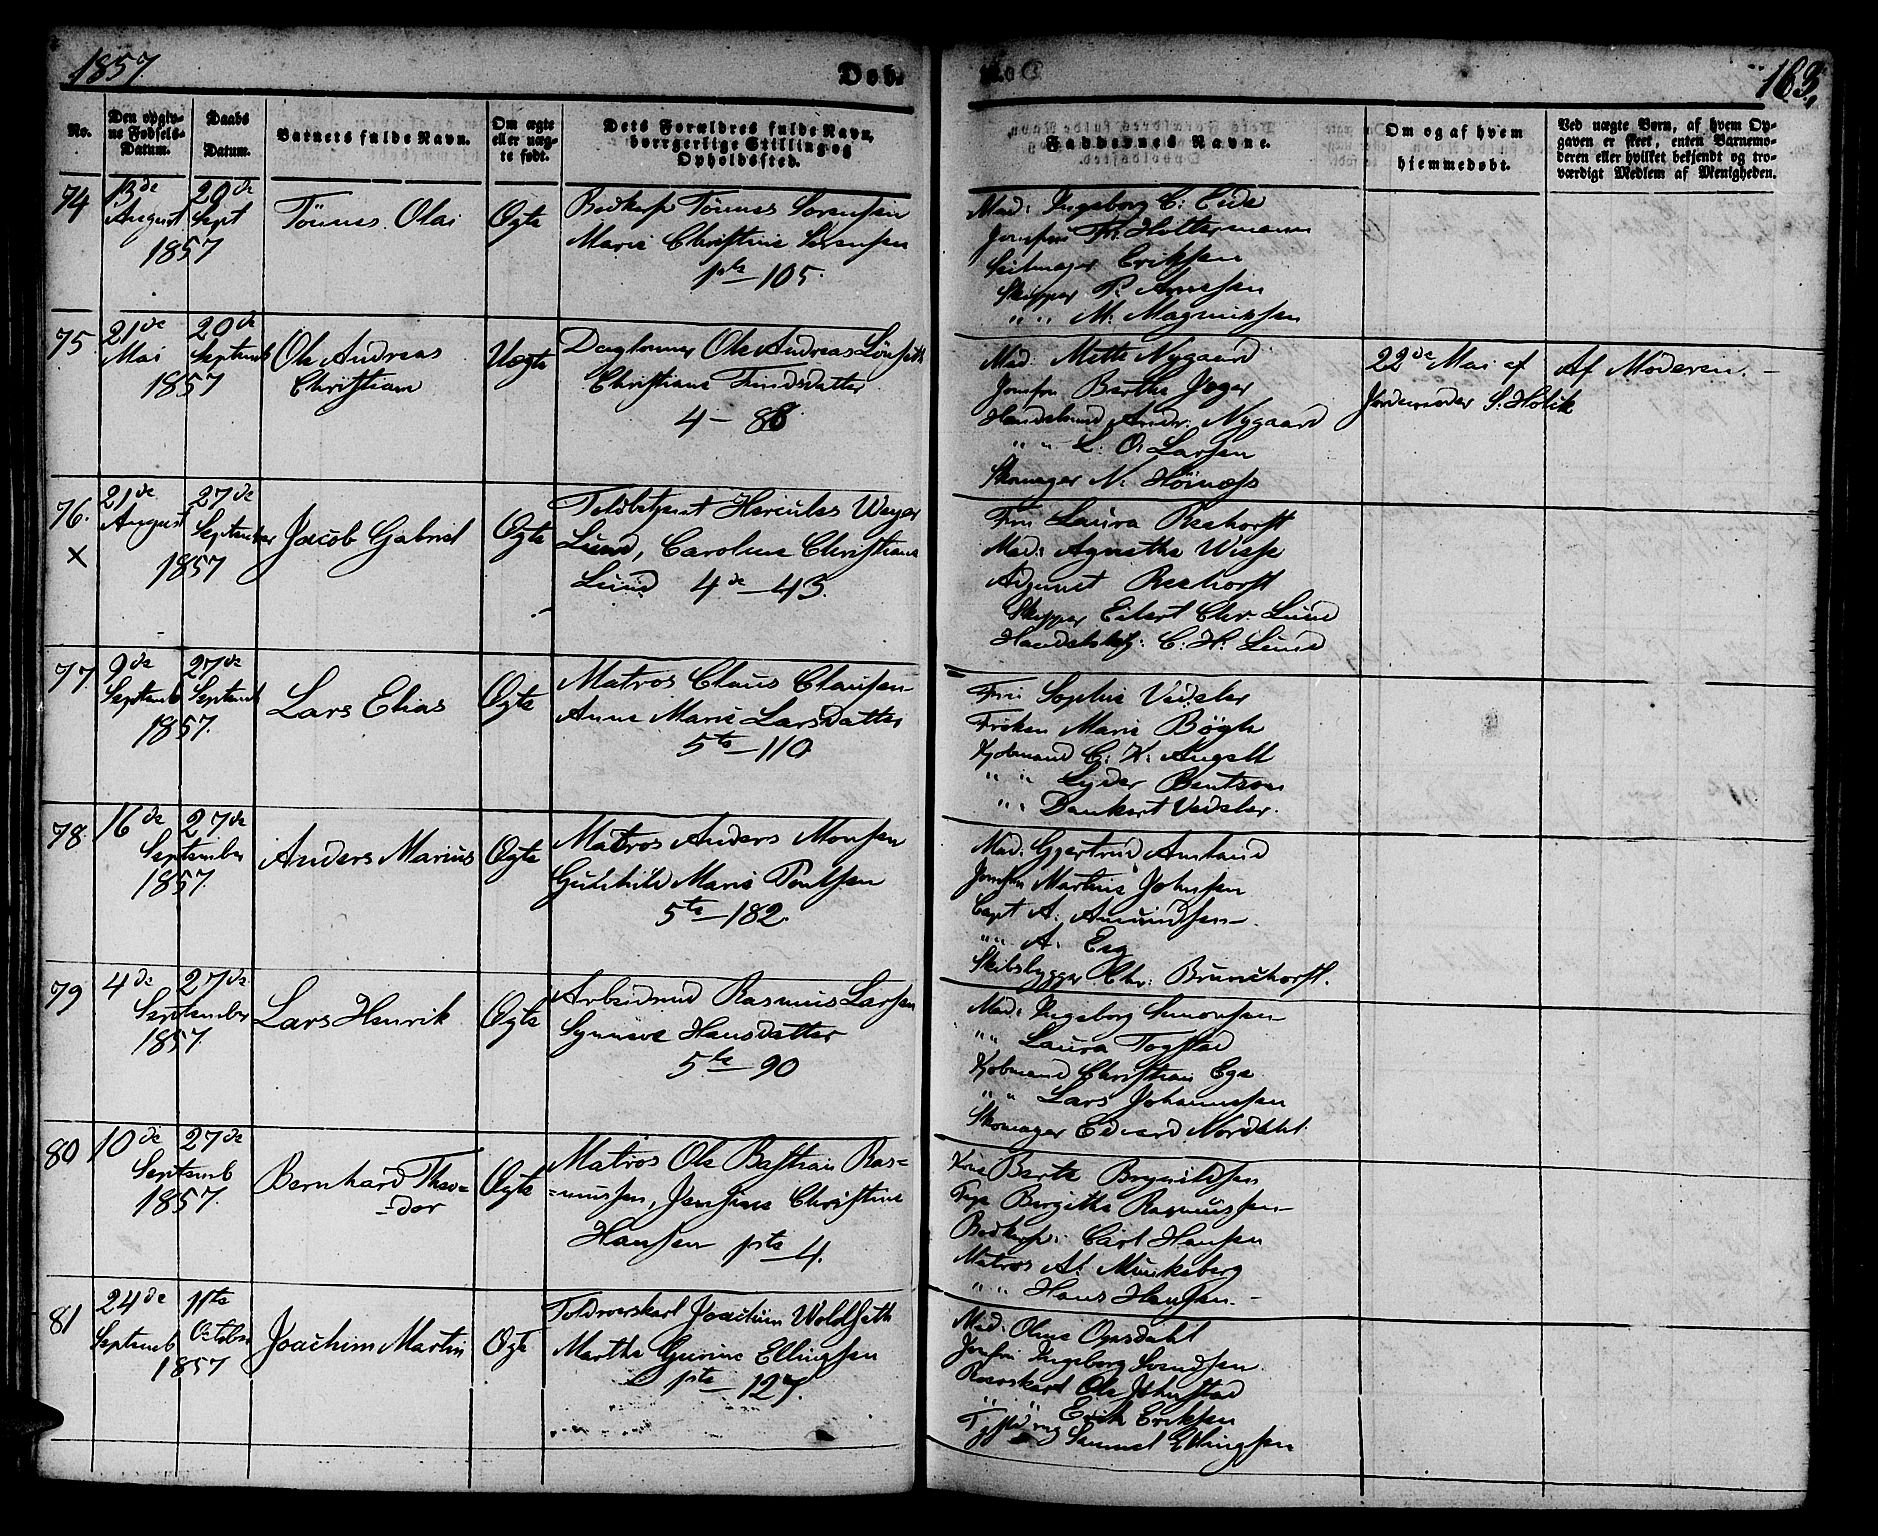 1857.
Døb.
163,
No.
Den opgiv-
ne Fødsels-
Datum.
Daabs
Datum.
Barnets fulde Navn.
Om ægte
eller uæg-
te født.
Dets Forældres fulde Navn,
borgerlige Stilling og
Opholdssted.
Faddernes Navne.
Om og af hvem
hjemmedøbt.
Ved uægte Børn, af hvem Op-
gaven er skeet, enten Barnemo-
deren eller hvilket bekjendt og tro-
værdigt Medlem af Menigheden.
74
13de
August
20de
Sept
1857
Tönnes Olai
Ægte
Bødkersv Tönnes Sørensen
Marie Christine Sørensen
1ste 105.
Mad: Ingeborg C: Eide
Jomfru Fr. Holtermann
Seilmager Eriksen
Skipper P. Arnesen
" " M. Magnussen
75.
21de
Mai
20de
Septemb
1857
Ole Andreas
Christian
Uægte
Daglønner Ole Andreas
Christiane Findsdatter
4 - 88
Mad. Mette Nygaard
Jomfru Berthe Jæger
Handelsmd Andr. Nygaard
" " L. O. Larsen
Skomager N. Hörnæs
22de Mai af
Jordemoder S. Holck
Af Moderen. -
76.
x
21de
August
27de
September
1857
Jacob Gabriel
Ægte
Toldbetjent Herculas Weyer
Lund, Caroline Christiane
Lund 4de 43.
Fru Laura Reehorst
Mad: Agnethe Wisse
Adjunct Reehorst
Skipper Eilert Chr. Lund
C. H. Lund
77.
9de
Septemb
27de
Septemb
1857.
Lars Elias
Ægte
Matros Claus Clausen
Anne Marie Larsdatter
5te 110
Fru Sophie Vedeler
Frøken Marie Bögh
Kjøbmand C: K: Angell
" " Lyder Bentson
" " Dankert Vedeler.
78.
16de
27de
September
1857.
Anders Marius
Ægte
Matros Anders Monsen
Gulehild Marie Poulsen
5te 182.
Mad. Amland
Jomfru Martine Johnsen
Capt A. Amundsen
" " A. Eeg
Skibsbygger Chr. Brunchorst.
79
4de
27de
September
1857.
Lars Henrik
Ægte
Arbeidsmd Rasmus Larsen
Synneve Hansdatter
5te 90
Mad. Ingeborg Simonsen
" " Laura Togstad
Kjøbmand Christian Ege
" " Lars Johannessen
Skomager Edvard Nordahl
80
10de
27de
Septemb
1857.
Bernhard Theo=
=dor
Ægte
Matros Ole Bastian Ras=
=mussen, Jensine Christine
Hansen 1ste 4.
Kone Berte Brynildsen
Pige Bergitha Rasmussen
Bødkersv: Carl Hansen
Matros A. Munkeberg
" " Hans Hansen. -
81
24de
Septemb
11te
October
1857
Joachim Martin
Ægte
Toldroerskarl Joachim Woldseth
Marthe Gurine Ellingsen
1ste 127.
Mad: Oline Opsdahl
Jomfru Ingeborg Svendsen
Roerskarl Ole Johnstad
" " Erik Eriksen
Samuel Ellingsen